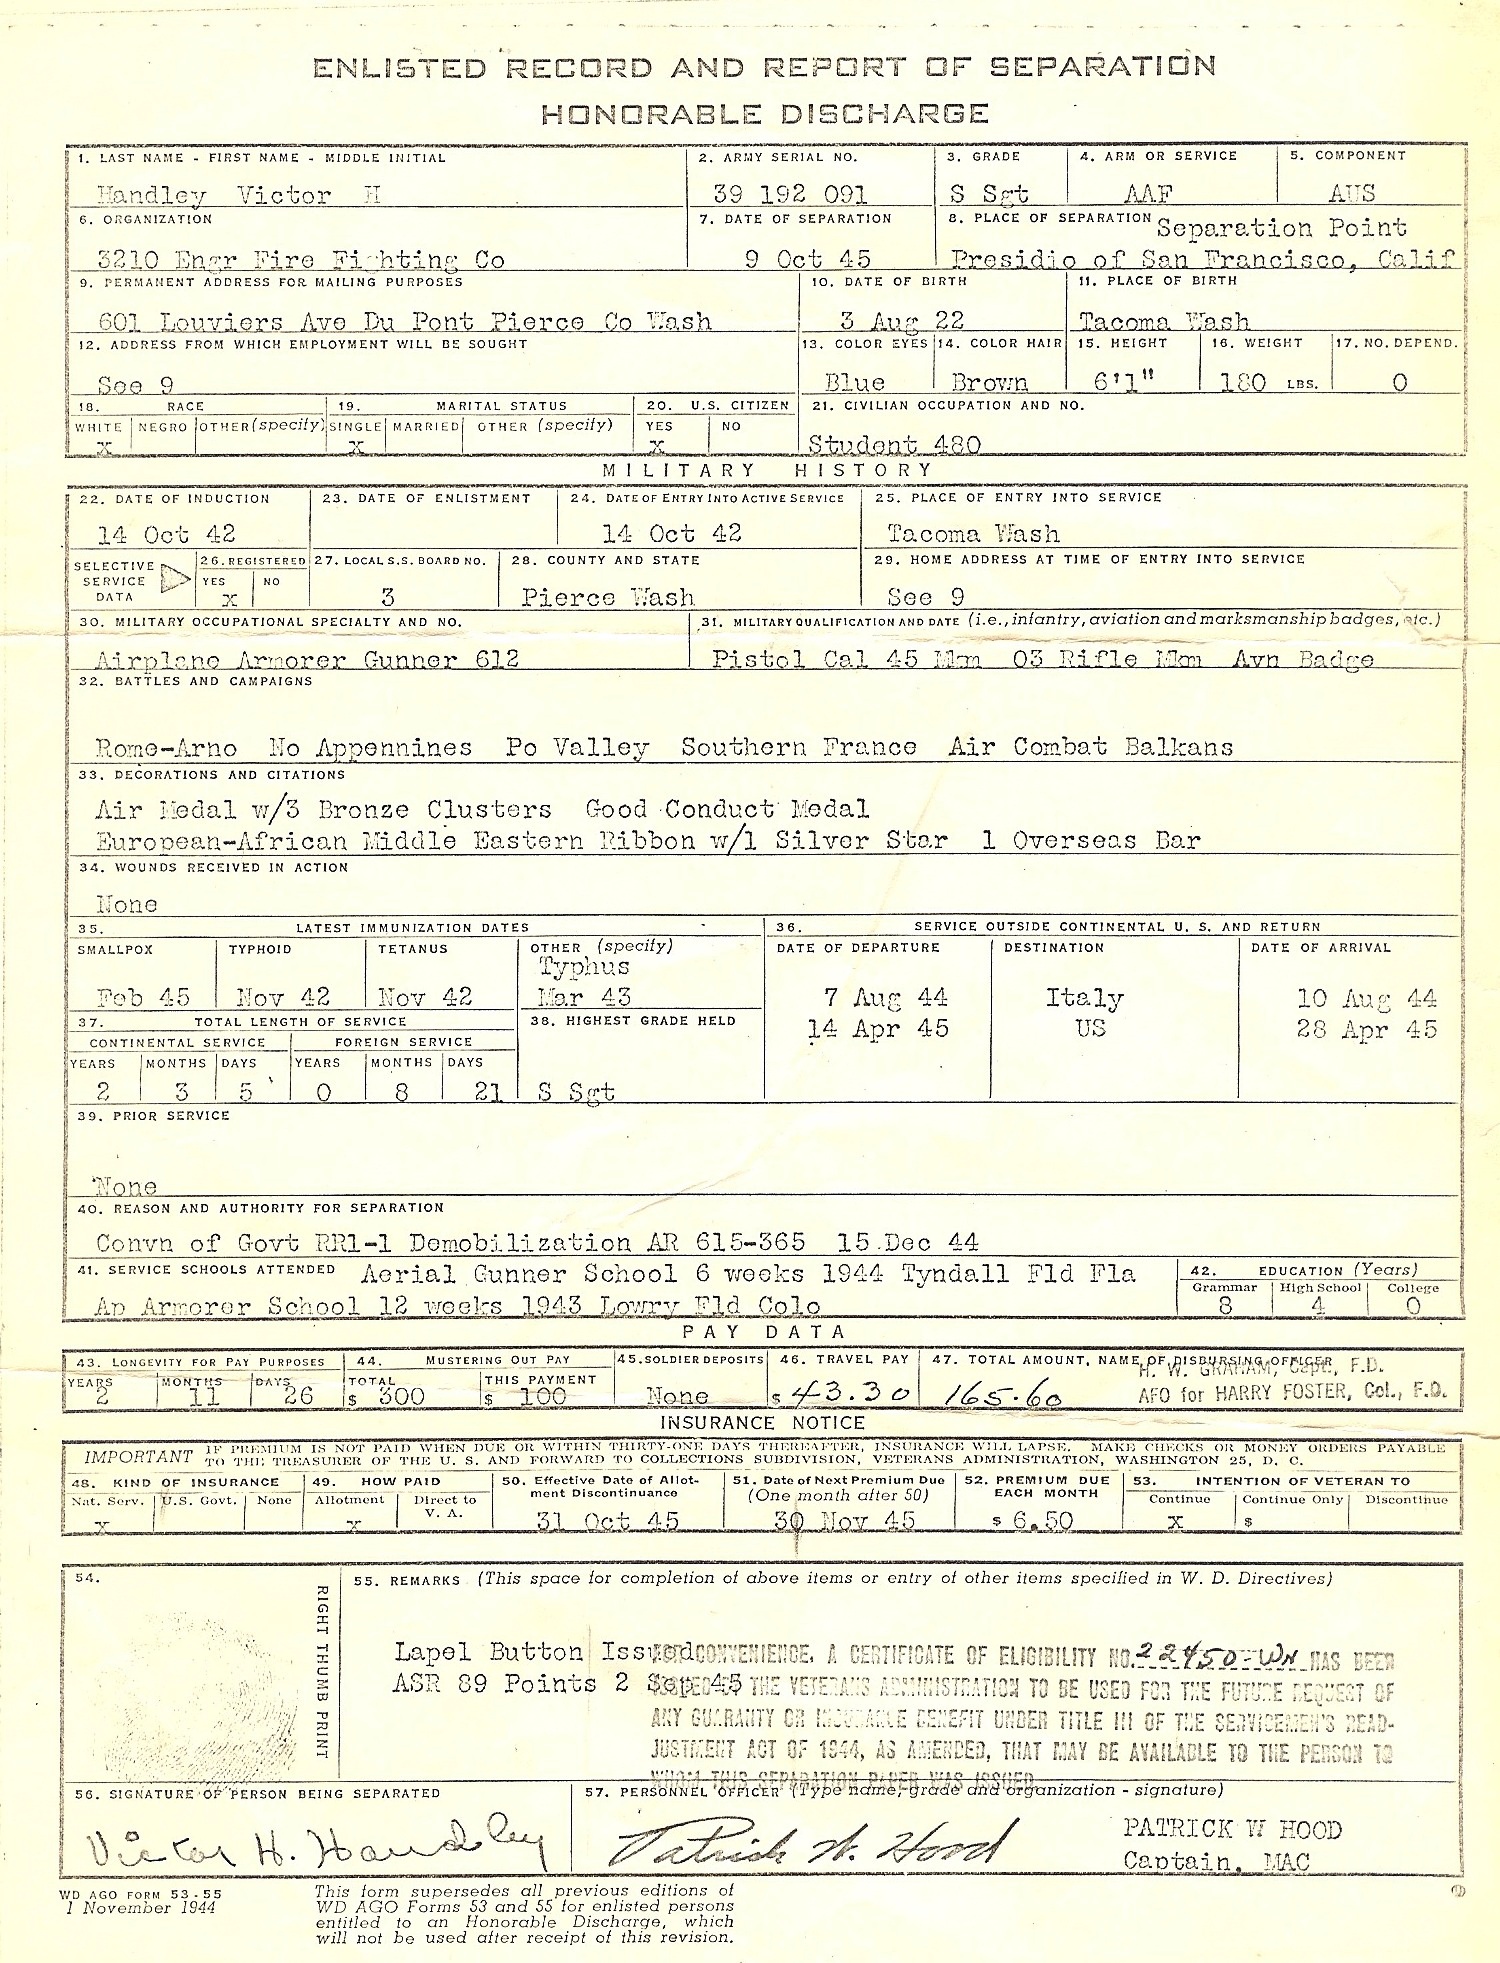 ENLISTED RECORD AND REPORT OF SEPARATION
HONORABLE DISCHARGE
1. LAST NAME - FIRST NAME - MIDDLE INITIAL
Handley Victor H
2. ARMY SERIAL NO.
39 192 091
3. GRADE
S Sgt
4. ARM OR SERVICE
AAF
5. COMPONENT
AUS
6. ORGANIZATION
3210 Engr Fire Fighting Co
7. DATE OF SEPARATION
9 Oct 45
8. PLACE OF SEPARATION Separation Point
Presidio of San Francisco, Calif
9. PERMANENT ADDRESS FOR MAILING PURPOSES
601 Louviers Ave Du Pont Pierce Co Wash
10. DATE OF BIRTH
3 Aug 22
11. PLACE OF BIRTH
Tacoma Wash
12. ADDRESS FROM WHICH EMPLOYMENT WILL BE SOUGHT
See 9
13. COLOR EYES
Blue
14. COLOR HAIR
Brown
15. HEIGHT
6'1"
16. WEIGHT
180 LBS.
17. NO. DEPEND.
0
18. RACE
WHITE NEGRO OTHER (specify)
X
19. MARITAL STATUS
SINGLE MARRIED OTHER (specify)
X
20. U.S. CITIZEN
YES NO
X
21. CIVILIAN OCCUPATION AND NO.
Student 480
MILITARY HISTORY
22. DATE OF INDUCTION
14 Oct 42
23. DATE OF ENLISTMENT
24. DATE OF ENTRY INTO ACTIVE SERVICE
14 Oct 42
25. PLACE OF ENTRY INTO SERVICE
Tacoma Wash
SELECTIVE SERVICE DATA
26. REGISTERED
YES NO
X
27. LOCAL S.S. BOARD NO.
3
28. COUNTY AND STATE
Pierce Wash
29. HOME ADDRESS AT TIME OF ENTRY INTO SERVICE
See 9
30. MILITARY OCCUPATIONAL SPECIALTY AND NO.
Airplane Armorer Gunner 612
31. MILITARY QUALIFICATION AND DATE (i.e., infantry, aviation and marksmanship badges, etc.)
Pistol Cal 45 Mkm 03 Rifle Mkm Avn Badge
32. BATTLES AND CAMPAIGNS
Rome-Arno No Appennines Po Valley Southern France Air Combat Balkans
33. DECORATIONS AND CITATIONS
Air Medal w/3 Bronze Clusters Good Conduct Medal
European-African Middle Eastern Ribbon w/1 Silver Star 1 Overseas Bar
34. WOUNDS RECEIVED IN ACTION
None
35. LATEST IMMUNIZATION DATES
SMALLPOX TYPHOID TETANUS OTHER (specify)
Typhus
Feb 45 Nov 42 Nov 42 Mar 43
36. SERVICE OUTSIDE CONTINENTAL U. S. AND RETURN
DATE OF DEPARTURE DESTINATION DATE OF ARRIVAL
7 Aug 44 Italy 10 Aug 44
14 Apr 45 US 28 Apr 45
37. TOTAL LENGTH OF SERVICE
CONTINENTAL SERVICE FOREIGN SERVICE
YEARS MONTHS DAYS YEARS MONTHS DAYS
2 3 5 0 8 21
38. HIGHEST GRADE HELD
S Sgt
39. PRIOR SERVICE
None
40. REASON AND AUTHORITY FOR SEPARATION
Convn of Govt RR1-1 Demobilization AR 615-365 15 Dec 44
41. SERVICE SCHOOLS ATTENDED Aerial Gunner School 6 weeks 1944 Tyndall Fld Fla
Ap Armorer School 12 weeks 1943 Lowry Fld Colo
42. EDUCATION (Years)
Grammar High School College
8 4 0
PAY DATA
43. LONGEVITY FOR PAY PURPOSES
YEARS MONTHS DAYS
2 11 26
44. MUSTERING OUT PAY
TOTAL THIS PAYMENT
$ 300 $ 100
45. SOLDIER DEPOSITS
None
46. TRAVEL PAY
$ 43.30
47. TOTAL AMOUNT, NAME OF DISBURSING OFFICER
H. W. GRAHAM, Capt., F.D.
165.60 AFO for HARRY FOSTER, Col., F.D.
INSURANCE NOTICE
IMPORTANT IF PREMIUM IS NOT PAID WHEN DUE OR WITHIN THIRTY-ONE DAYS THEREAFTER, INSURANCE WILL LAPSE. MAKE CHECKS OR MONEY ORDERS PAYABLE
TO THE TREASURER OF THE U. S. AND FORWARD TO COLLECTIONS SUBDIVISION, VETERANS ADMINISTRATION, WASHINGTON 25, D. C.
48. KIND OF INSURANCE
Nat. Serv. U.S. Govt. None
X
49. HOW PAID
Allotment Direct to V. A.
X
50. Effective Date of Allotment Discontinuance
31 Oct 45
51. Date of Next Premium Due
(One month after 50)
30 Nov 45
52. PREMIUM DUE EACH MONTH
$ 6.50
53. INTENTION OF VETERAN TO
Continue Continue Only Discontinue
X $
54.
RIGHT THUMB PRINT
55. REMARKS (This space for completion of above items or entry of other items specified in W. D. Directives)
Lapel Button Issued CONVENIENCE. A CERTIFICATE OF ELIGIBILITY NO. 22450-WN HAS BEEN
ASR 89 Points 2 Sep 45 THE VETERANS ADMINISTRATION TO BE USED FOR THE FUTURE REQUEST OF
ANY GUARANTY OR INSURABLE BENEFIT UNDER TITLE III OF THE SERVICEMEN'S READ-
JUSTMENT ACT OF 1944, AS AMENDED, THAT MAY BE AVAILABLE TO THE PERSON TO
WHOM THIS SEPARATION PAPER WAS ISSUED
56. SIGNATURE OF PERSON BEING SEPARATED
Victor H. Handley
57. PERSONNEL OFFICER (Type name, grade and organization - signature)
Patrick W. Hood
PATRICK W HOOD
Captain, MAC
WD AGO FORM 53-55
1 November 1944
This form supersedes all previous editions of
WD AGO Forms 53 and 55 for enlisted persons
entitled to an Honorable Discharge, which
will not be used after receipt of this revision.